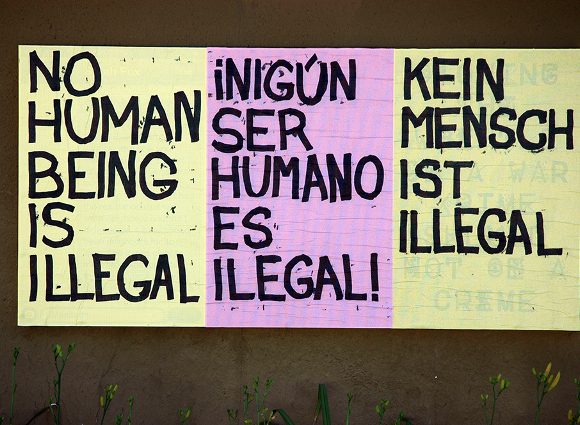 NO
HUMAN
BEING
IS
ILLEGAL
¡NIGÚN
SER
HUMANO
ES
ILEGAL!
KEIN
MENSCH
IST
ILLEGAL